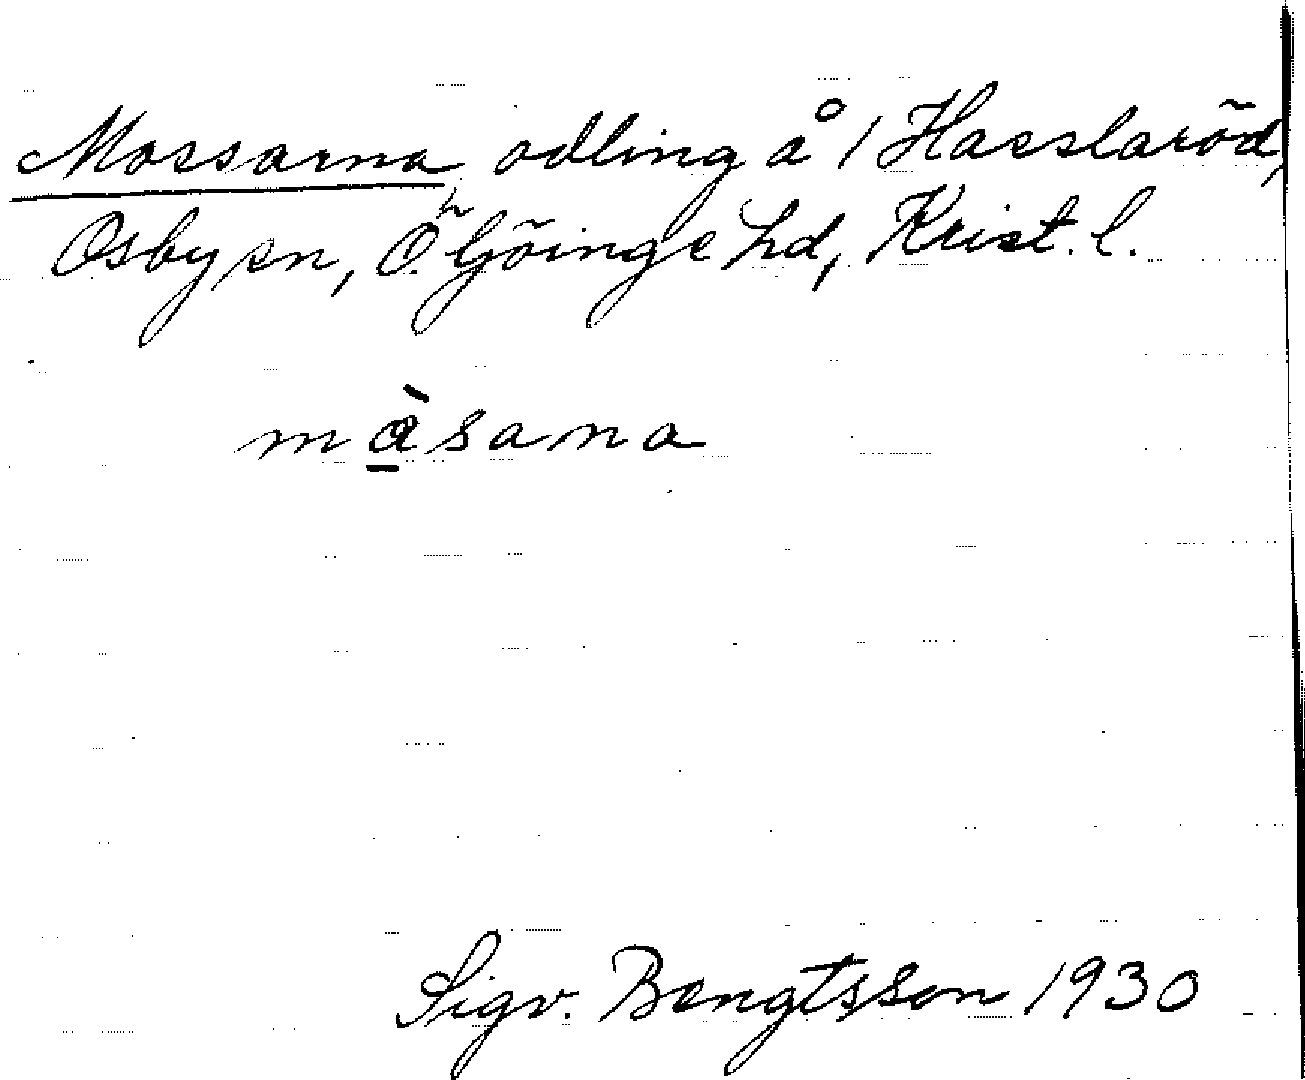 Mossarna, odling å 1 Hasslaröd,
Osby sn, Ö. Göinge hd, Krist. l.
mɑ̠̀sana
Sigv. Bengtsson 1930